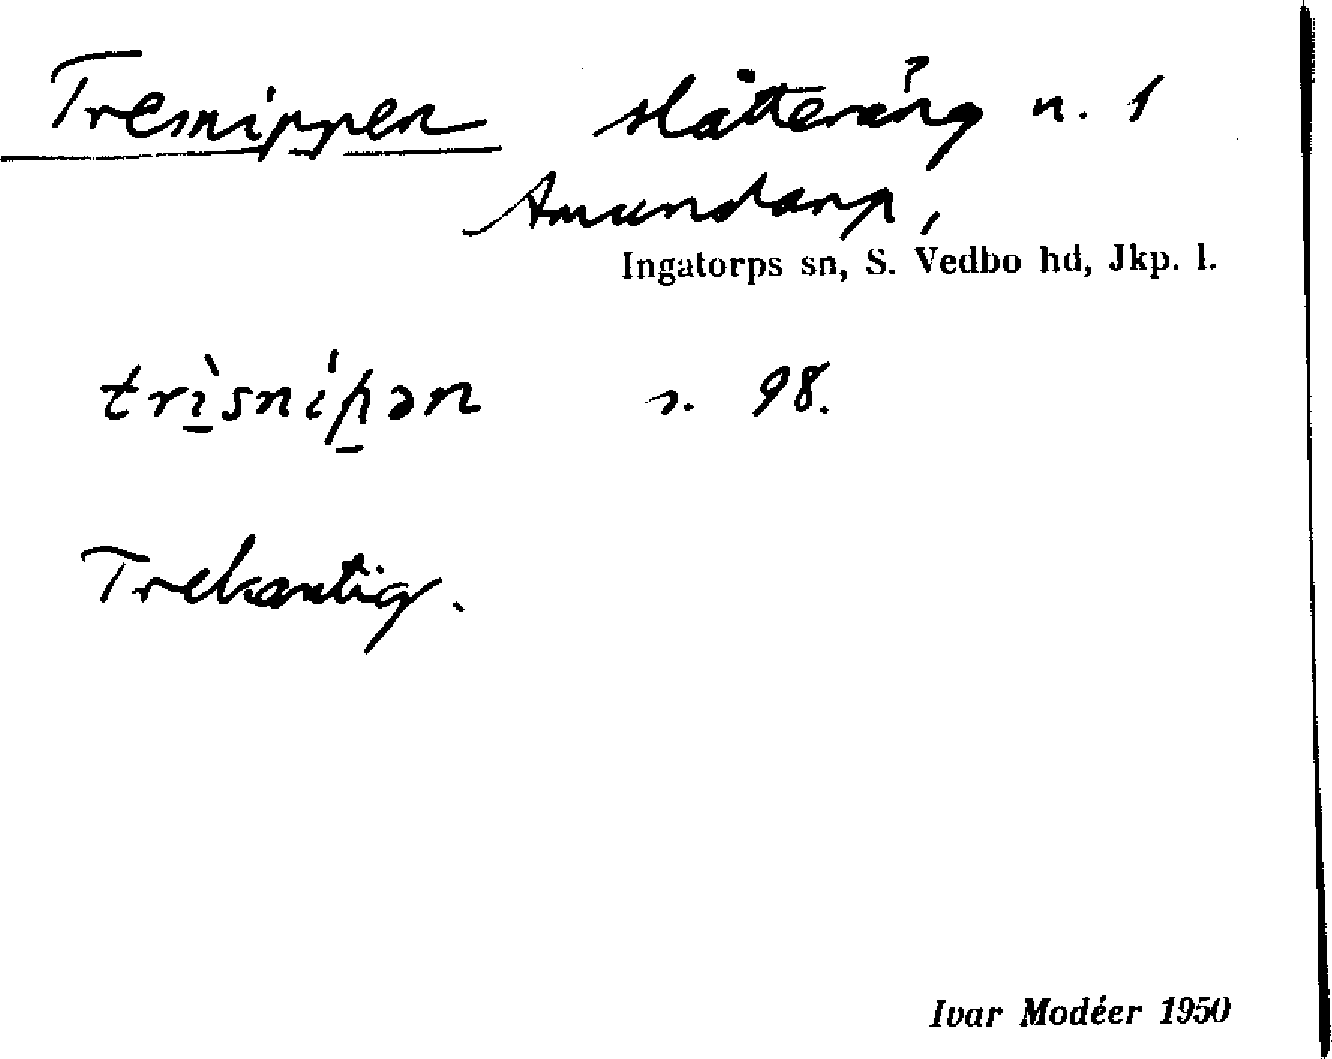 Tresnippen slåtteräng n. 1
Amundarp,
Ingatorps sn, S. Vedbo hd, Jkp. l.
trı̲̀snípə̲n s. 98.
Trekantig.
Ivar Modéer 1950